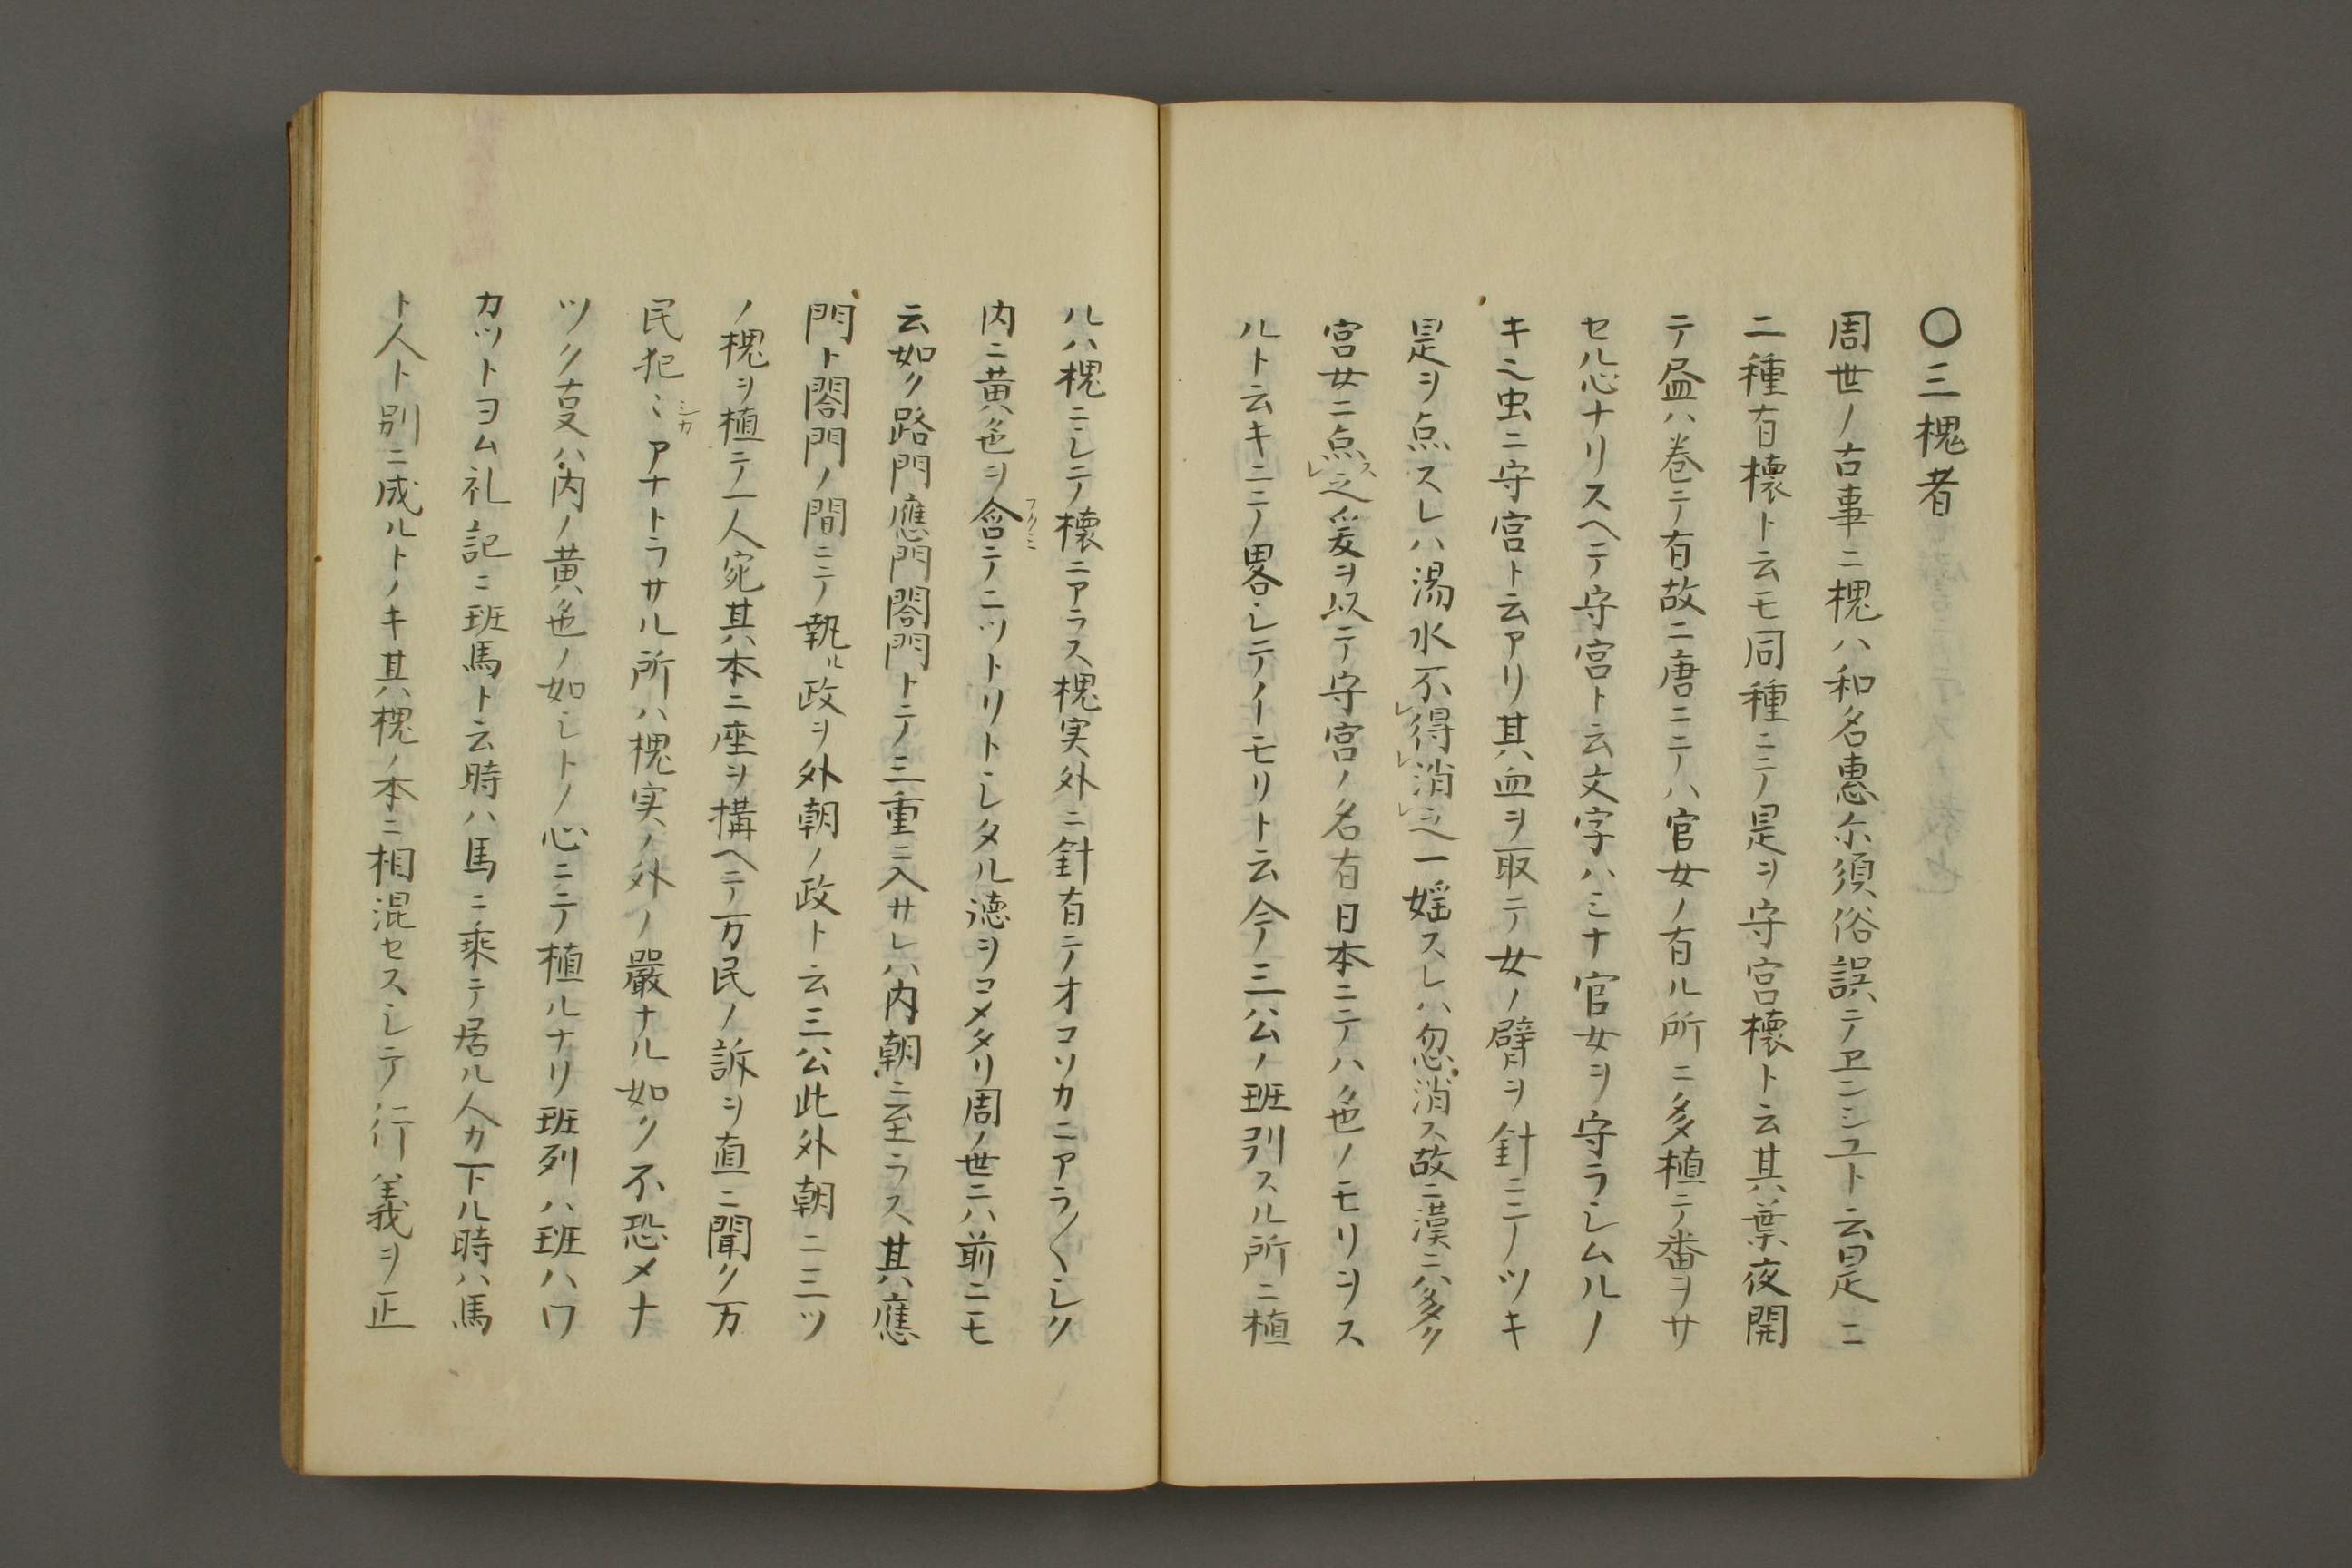 〇三槐者
周世ノ古事ニ槐ハ和名惠尓須俗誤テヱンシユト云是ニ
二種有櫰ト云モ同種ニテ是ヲ守宮櫰ト云其葉夜開
テ昼ハ巻テ有故ニ唐ニテハ官女ノ有ル所ニ多植テ番ヲサ
セル心ナリスヘテ守宮ト云文字ハミナ官女ヲ守ラシムルノ
キ之虫ニ守宮ト云アリ其血ヲ取テ女ノ臂ヲ針ニテツキ
是ヲ点スレハ湯水不㆑得㆑消㆑之一婬スレハ忽消ス故ニ漢ニハ多ク
宮女ニ点㆑ス之爰ヲ以テ守宮ノ名有日本ニテハ色ノモリヲス
ルト云キニテ畧シテイモリト云今ノ三公ノ班列スル所ニ植
ルハ槐ニシテ櫰ニアラス槐実外ニ針有テオコソカニアラ〱シク
内ニ黄色ヲ含フクミテニツトリトシタル徳ヲコメタリ周ノ世ニハ前ニモ
云如ク路門應門閤門トテ三重ニ入サレハ内朝ニ至ラス其應
門ト閤門ノ間ニテ執ル政ヲ外朝ノ政ト云三公此外朝ニ三ツ
ノ槐ヲ植テ一人宛其本ニ座ヲ構ヘテ万民ノ訴ヲ直ニ聞ク万
民犯ミシカアナトラサル所ハ槐実ノ外ノ嚴ナル如ク不恐メナ
ツク㕝ハ内ノ黄色ノ如シトノ心ニテ植ルナリ班列ハ班ハワ
カツトヨム礼記ニ班馬ト云時ハ馬ニ乘テ居ル人カ下ル時ハ馬
ト人ト別ニ成ルトノキ其槐ノ本ニ相混セスシテ行義ヲ正